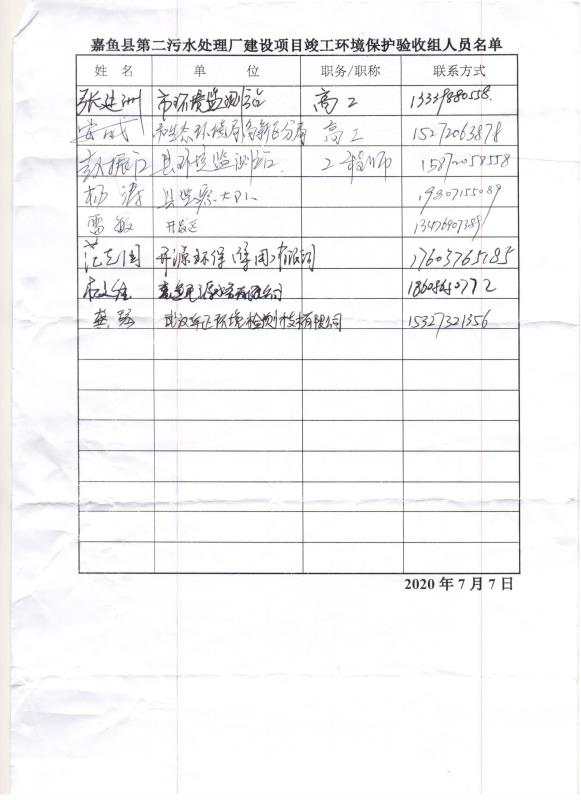 嘉鱼县第二污水处理厂建设项目竣工环境保护验收组人员名单
姓 名 单 位 职务/职称 联系方式
张进洲 市环境监测站 高工 13339880558
市生态环境局高新区分局 高工 15272063878
彭振江 县环境监测站 工程师
杨涛 县监察大队 19307155089
雷敏 开发区 13476907389
范志国 开源环保(集团)有限公司 17603765185
有限公司
龚强 武汉华正环境检测技术有限公司 15327321356
2020 年 7 月 7 日